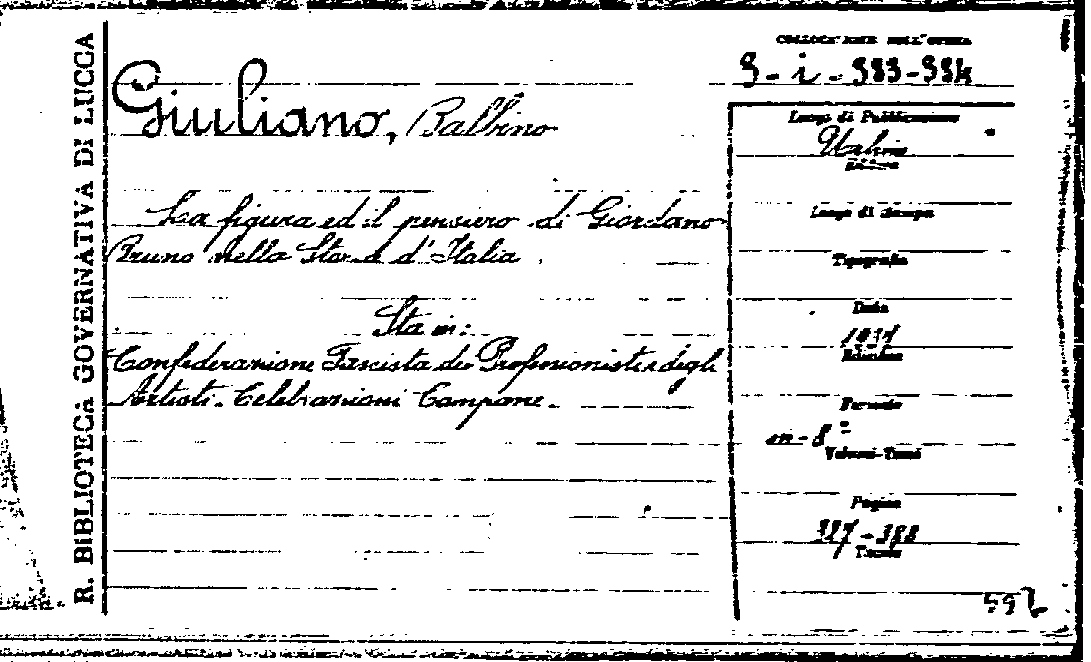 R. BIBLIOTECA GOVERNATIVA DI LUCCA
Giuliano, Balbino
La figura ed il pensiero di Giordano
Bruno nella Storia d'Italia.
Sta in:
Confederazione Fascista dei Professionisti e degli
Artisti. Celebrazioni Campane.
COLLOCAZIONE DELL'OPERA
Luogo di Pubblicazione
Urbino
Editore
Luogo di Stampa
Tipografia
Data
Edizione
Formato
in-8°
Volumi-Tomi
Pagine
Tavole